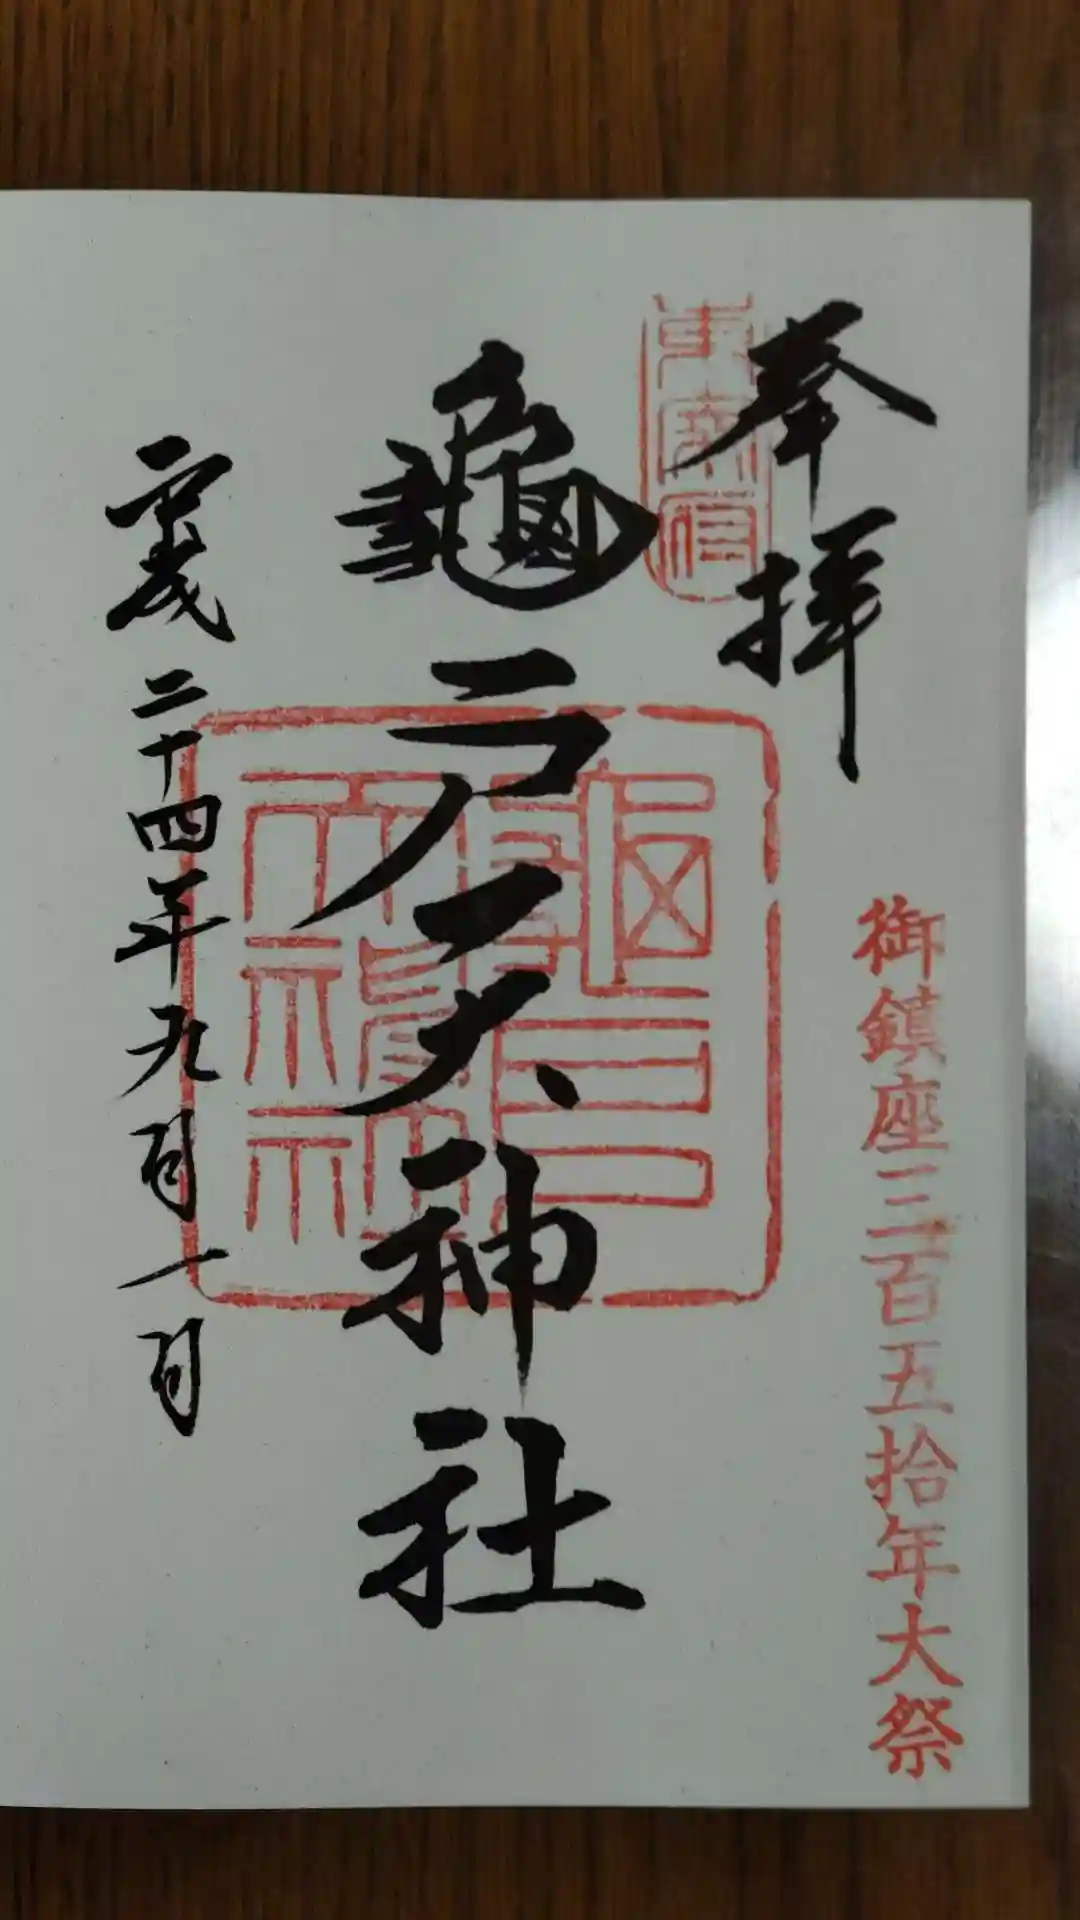 奉拝
東宰府
御鎮座三百五拾年大祭
龜戸天神社
平成二十四年九月一日